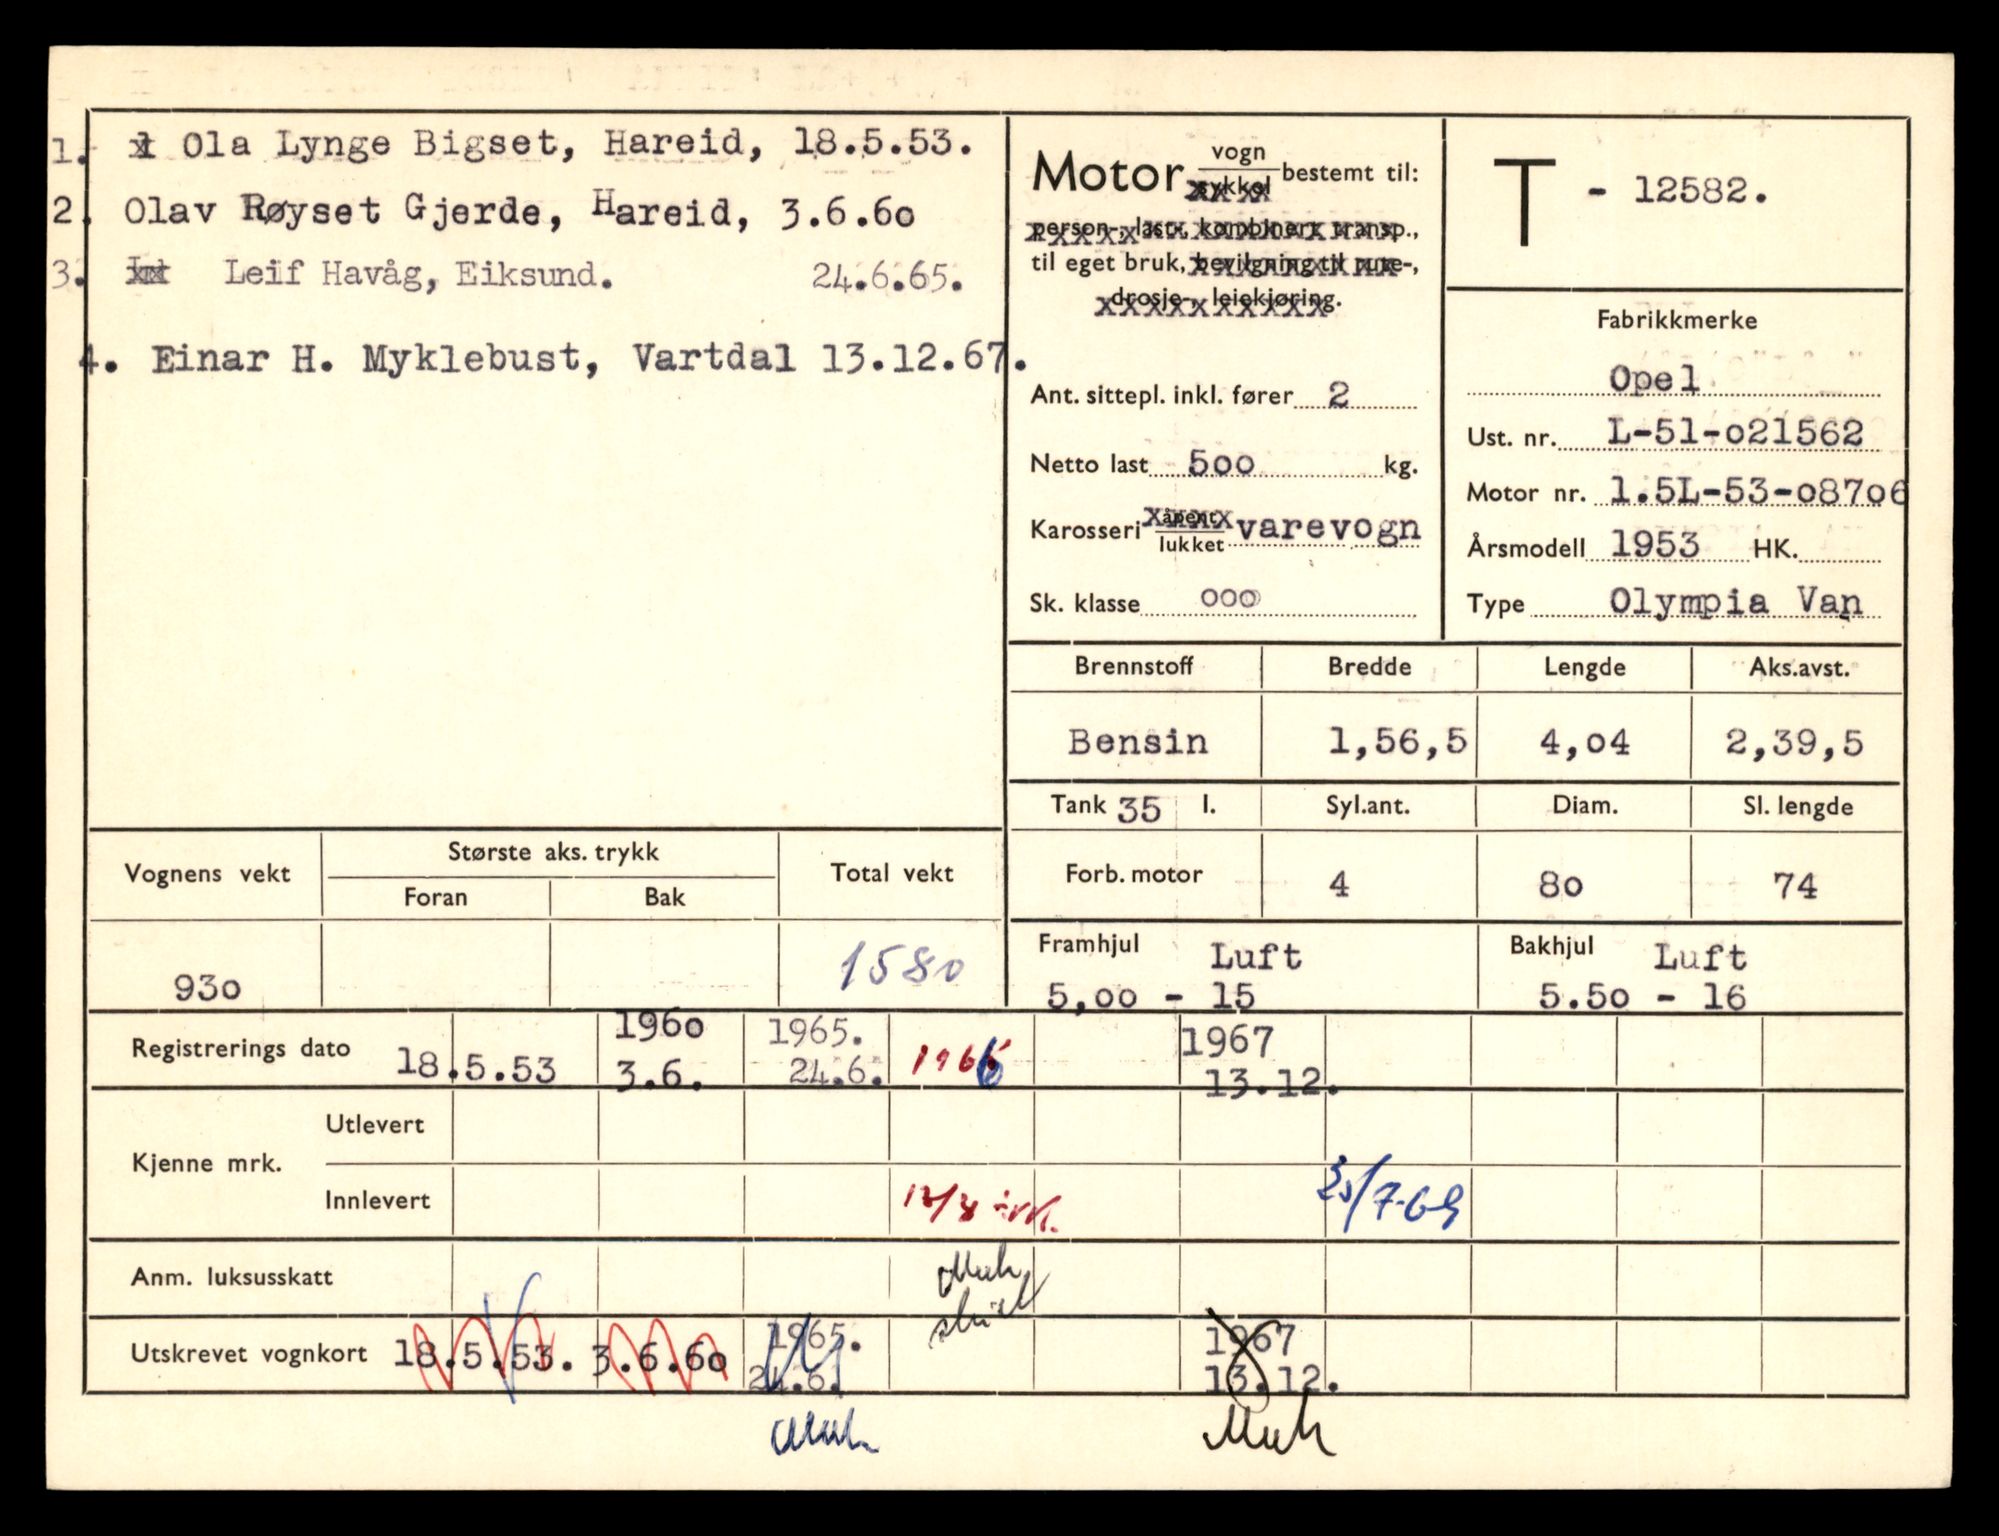 1. Ola Lynge Bigset, Hareid, 18.5.53.
2. Olav Røyset Gjerde, Hareid, 3.6.60
3. Leif Havåg, Eiksund. 24.6.65.
4. Einar H. Myklebust, Vartdal 13.12.67.
Motor vogn sykkel bestemt til:
person-, last-, kombinert transp.,
til eget bruk, bevilgning til rute-,
drosje-, leiekjøring.
Ant. sittepl. inkl. fører 2
Netto last 500 kg.
Karosseri åpent lukket varevogn
Sk. klasse 000
T - 12582.
Fabrikkmerke
Opel
Ust. nr. L-51-021562
Motor nr. 1.5L-53-08706
Årsmodell 1953 HK.
Type Olympia Van
Brennstoff Bredde Lengde Aks.avst.
Bensin 1,56,5 4,04 2,39,5
Tank 35 l. Syl.ant. Diam. Sl. lengde
Forb. motor 4 80 74
Framhjul Luft Bakhjul Luft
5,00 - 15 5.50 - 16
Vognens vekt Største aks. trykk Total vekt
Foran Bak
930 1580
Registrerings dato 18.5.53 1960 3.6. 1965. 24.6. 1966 1967 13.12.
Kjenne mrk.
Utlevert
Innlevert 25/7-69
Anm. luksusskatt
Utskrevet vognkort 18.5.53. 3.6.60 1965. 24.6. 1967 13.12.